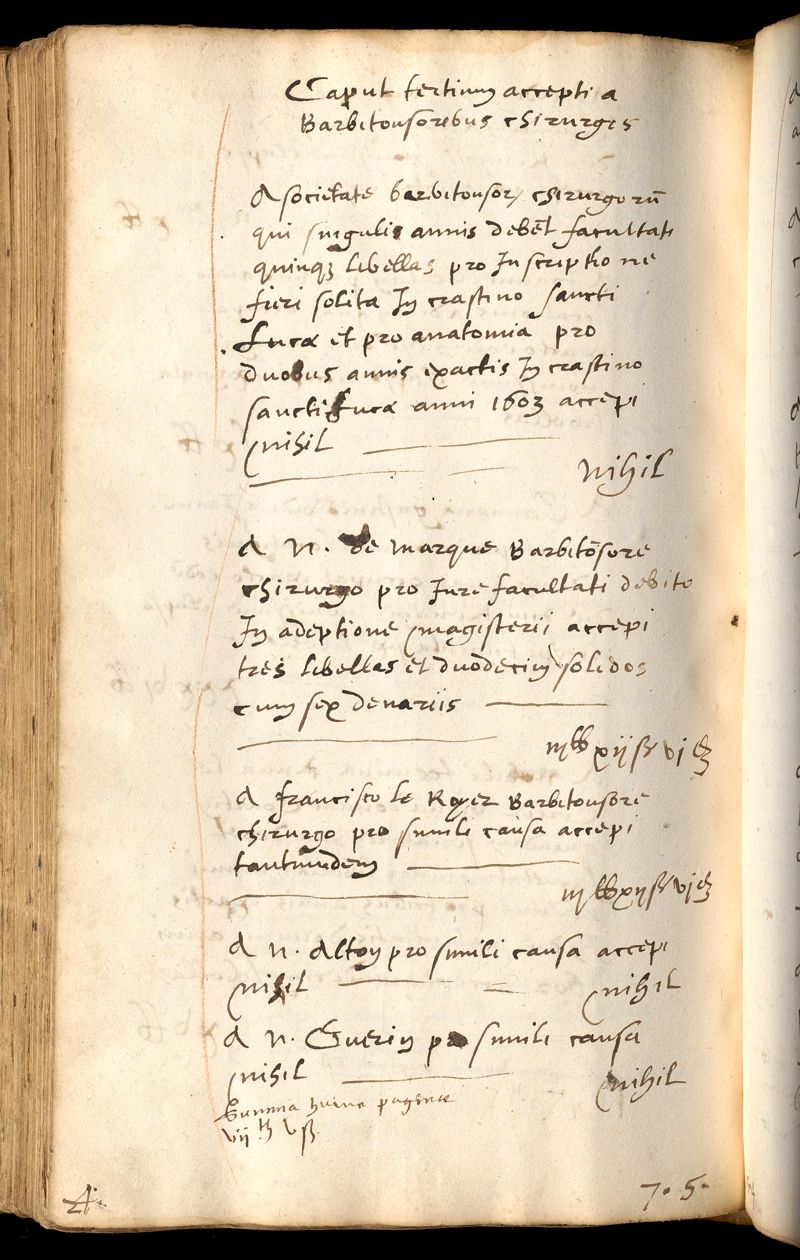 Caput tertium accepti a
Barbitonsoribus chirurgis
A societate barbitonsor, chirurgorū
qui singulis annis debēt facultati
quinqꝫ libellas pro Inscriptione
fieri solita In crastino sancti
Lucæ et pro anatomia pro
duobus annis exactis In crastino
sancti Lucæ anni 1603 accepi
nihil
nihil
A N. de Marque Barbitōsore
chirurgo pro Iure facultati debito
In adeptione magisterii accepi
tres libellas et duodecim solidos
cum sex denariis
iij ₶ xij ß vj ₰
A francisco le Royer Barbitonsore
chirurgo pro simili causa accepi
tantundem
iij ₶ xij ß vj ₰
A N. Alton pro simili causa accepi
nihil
nihil
A N. Guerin pro simili causa
nihil
nihil
Summa huius paginæ
vij ₶ v ß
4.
7. 5.